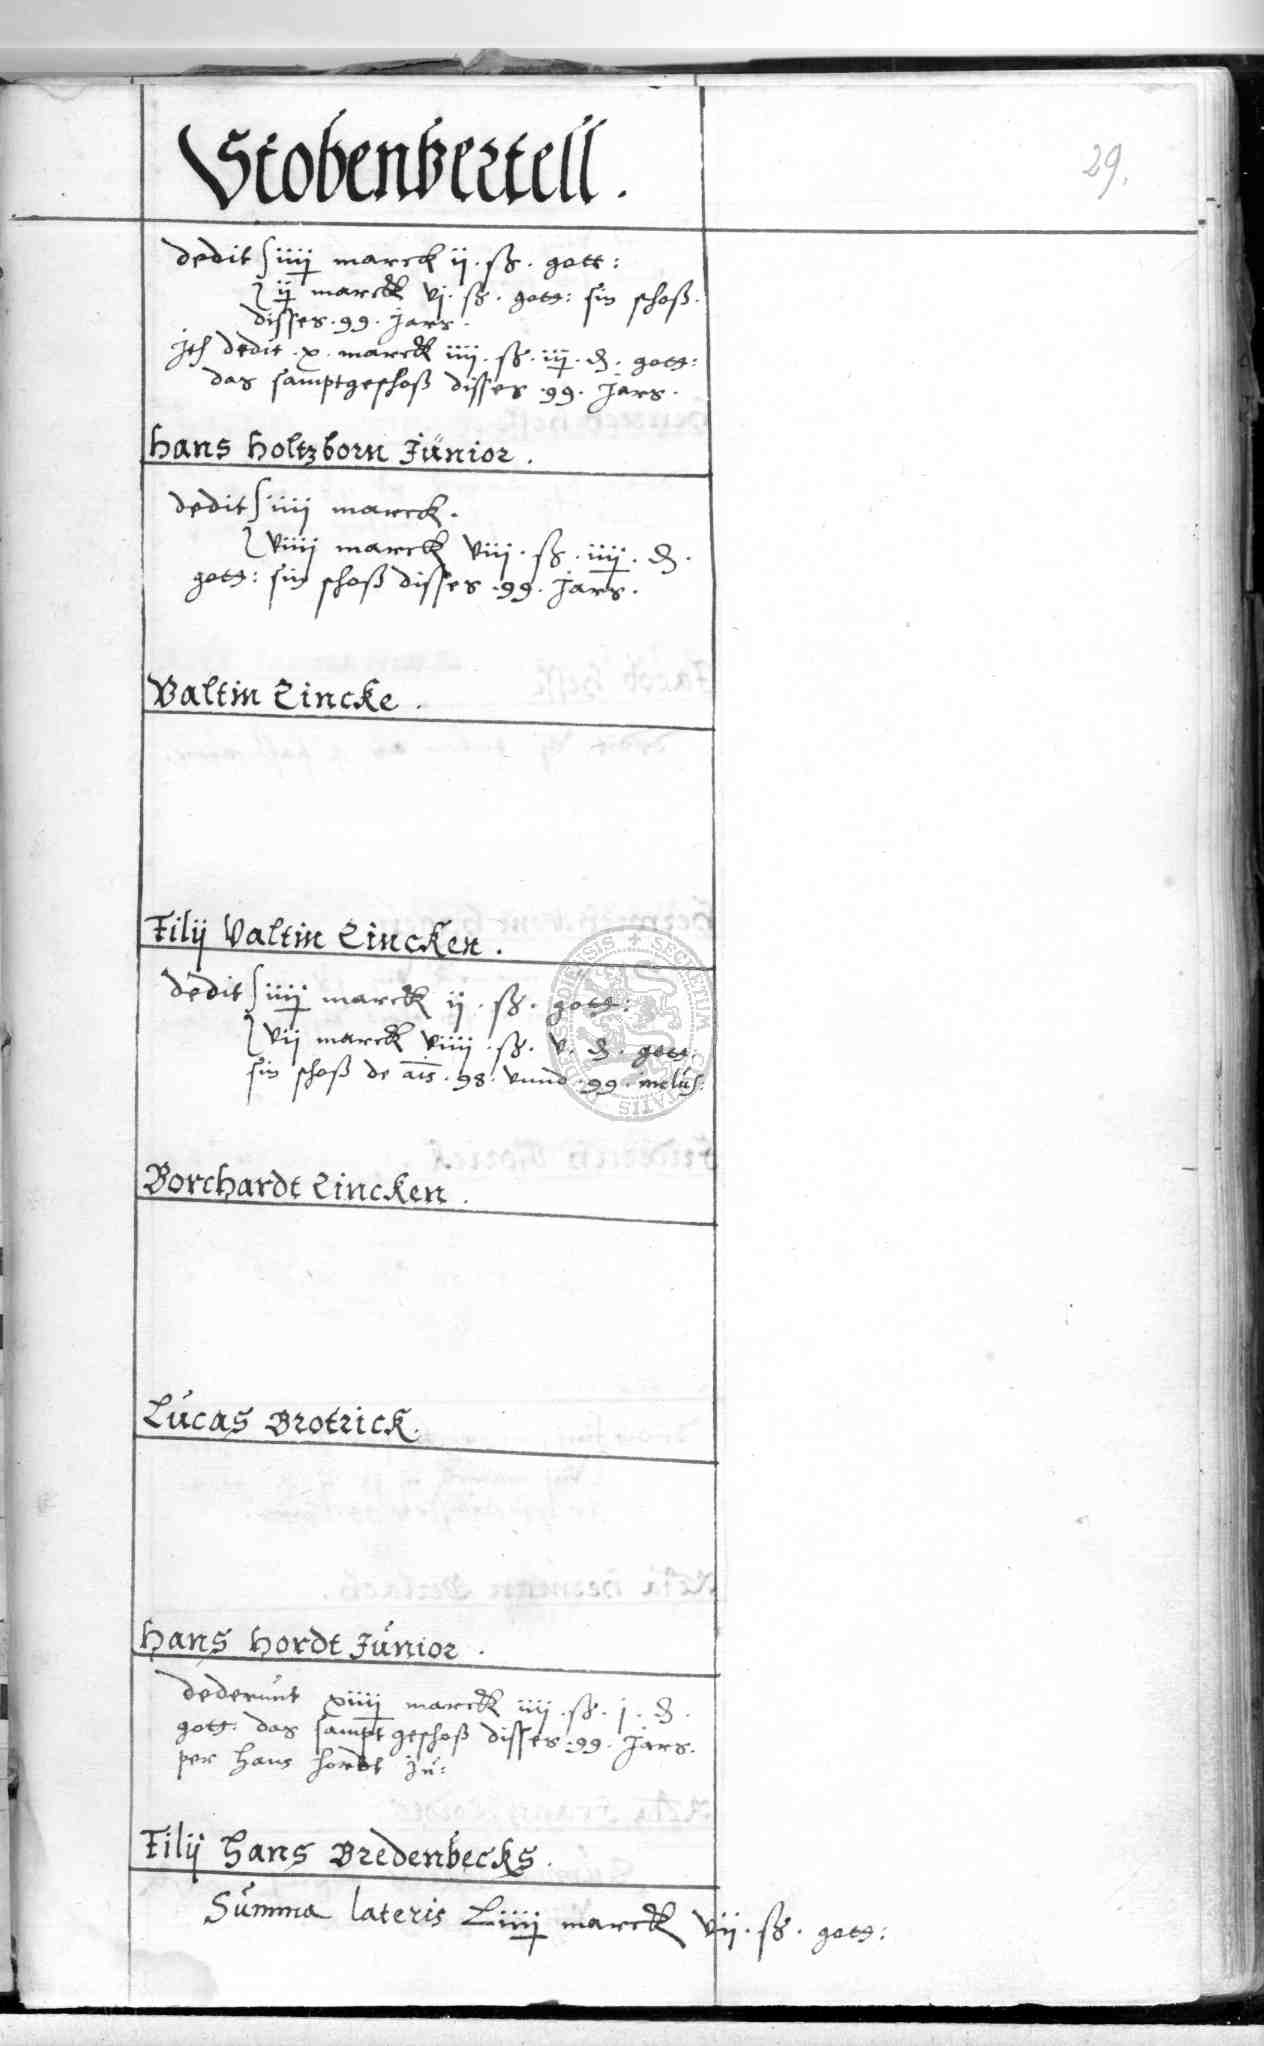 Stobenvertell.
29.
dedit iiij marck ij. ß. gott:
ij marck vj. ß. gott: sin schoß
disses .99. jars.
Ith dedit .x. marck iiij. ß. iij. d. gott:
das samptgeschoß disses .99. Jars.
Hans Holtzborn Junior.
dedit iiij marck.
viiij marck viij. ß. iiij. d.
gott: sin schoß disses .99. Jars.
Valtin Lincke.
Filij Valtin Lincken.
dedit iiij marck ij. ß. gott:
vij marck viiij. ß. v. d. gott.
sin schoß de ais .98. vnnd .99. inclus:
SECRETUM
Borchardt Lincken.
Lucas Brotrick.
Hans Hordt Junior.
dederunt xiiij marck iiij. ß. j. d.
gott: das sampt geschoß disses .99. Jars.
per Hans Hordt Ju:
Filij Hans Bredenbecks.
Summa lateris Liiij marck vij. ß. gott: